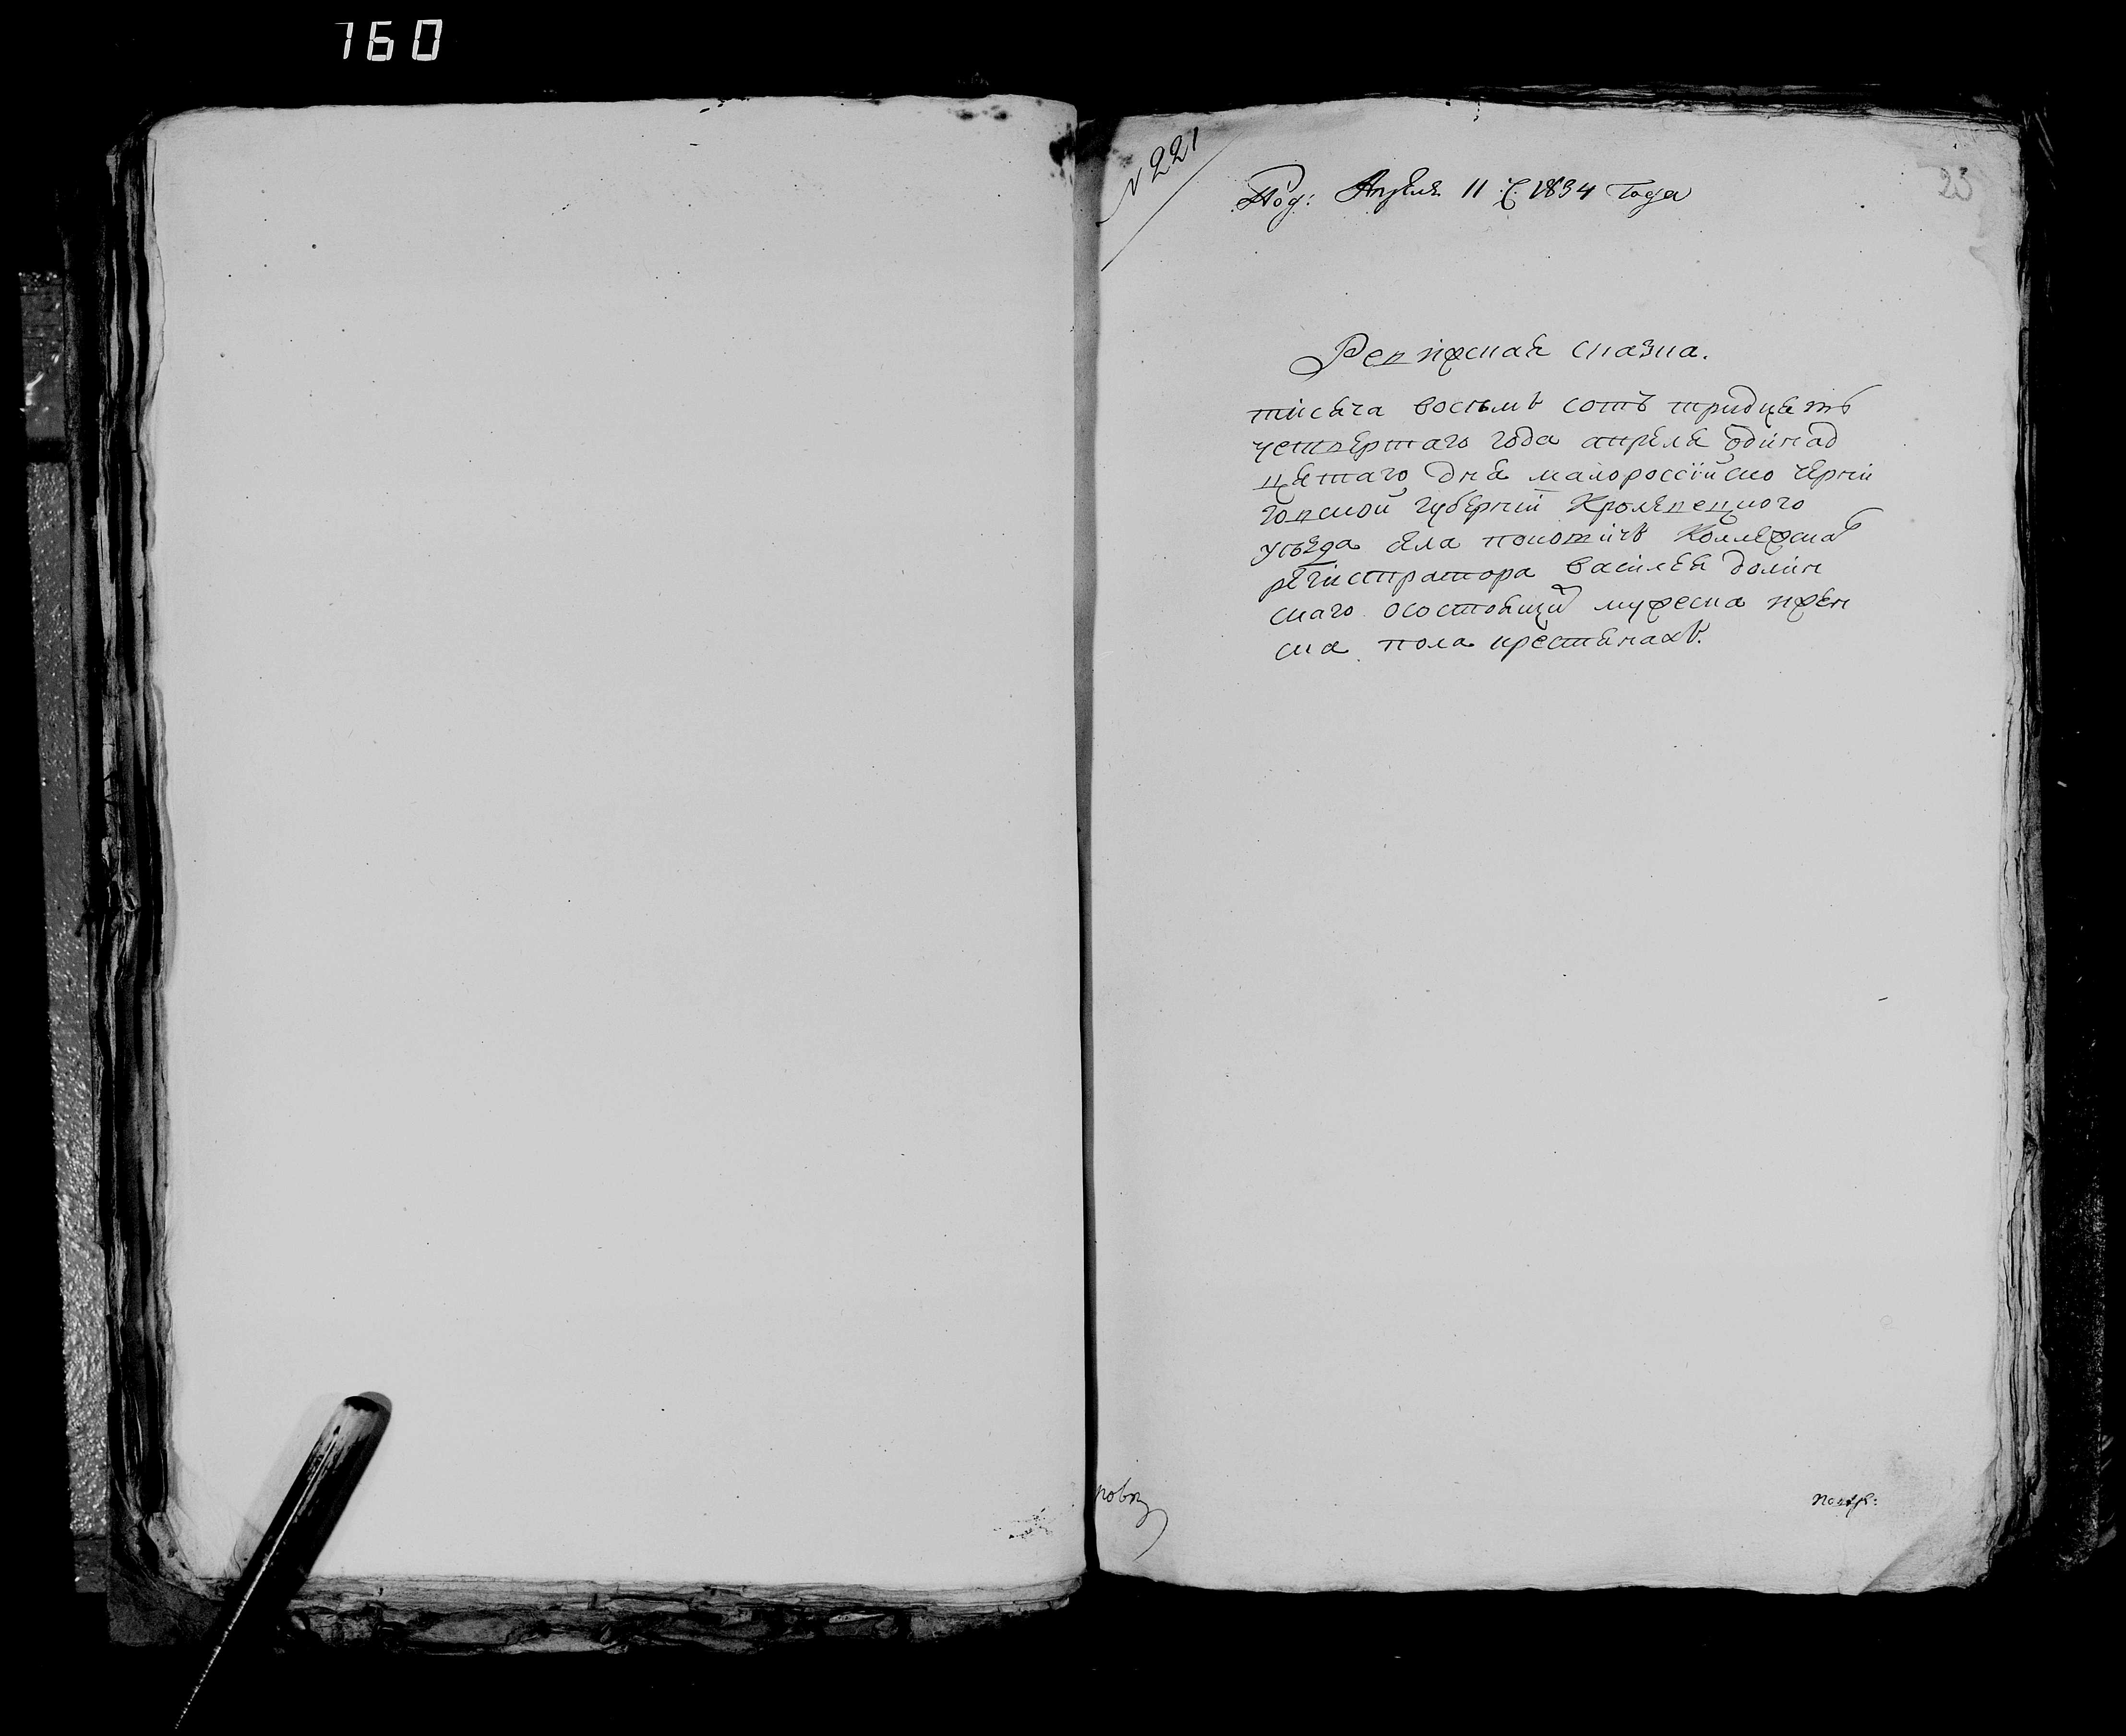 160
N 221
23
Под: Апреля 11 д. 1834 Года
Ревижская сказка.
тисяча восемъ сотъ тридцять
четвертаго года апреля одинад
цятаго дня малороссійско черни
говской губерній Кролевецкого
уезда села понотичъ Коллежска
регистратора василея долин
скаго осостоящи мужеска жен
ска пола крестянахъ.